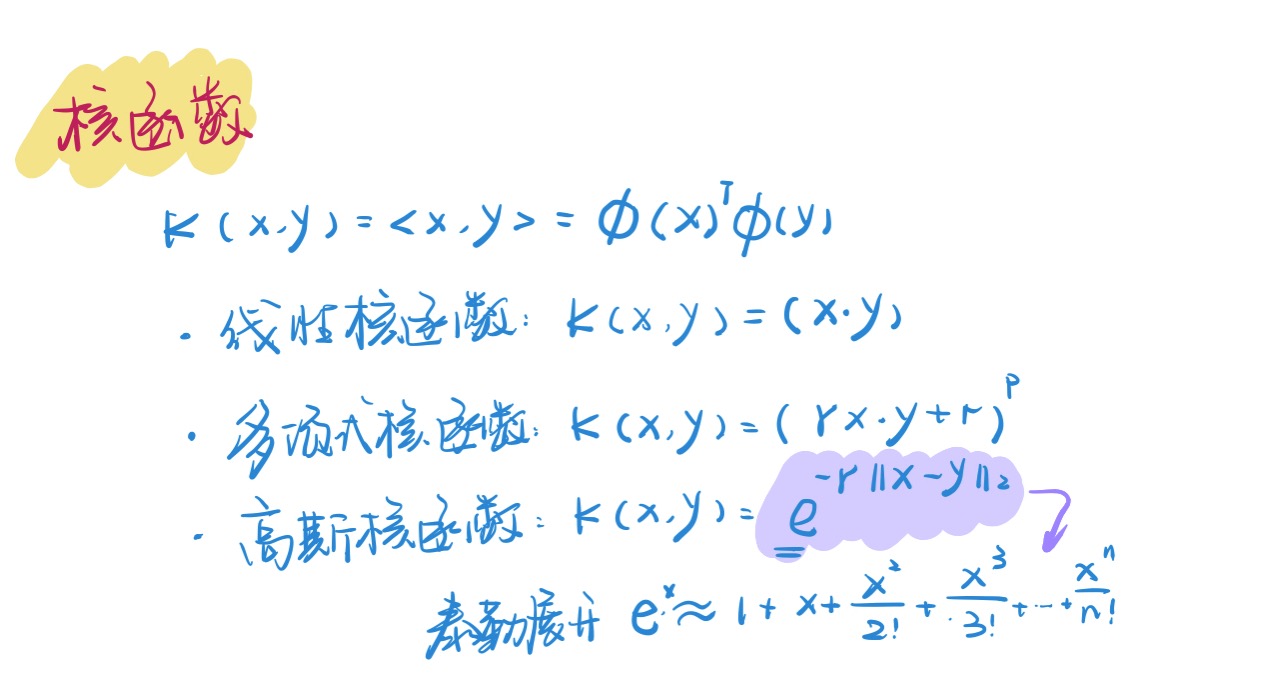 核函数
K(x,y) = <x,y> = ϕ(x)ᵀϕ(y)
· 线性核函数: K(x,y) = (x·y)
· 多项式核函数: K(x,y) = (γx·y+r)ᵖ
· 高斯核函数: K(x,y) = e^{-γ||x-y||₂}
泰勒展开 eˣ ≈ 1 + x + x²/2! + x³/3! + ··· + xⁿ/n!